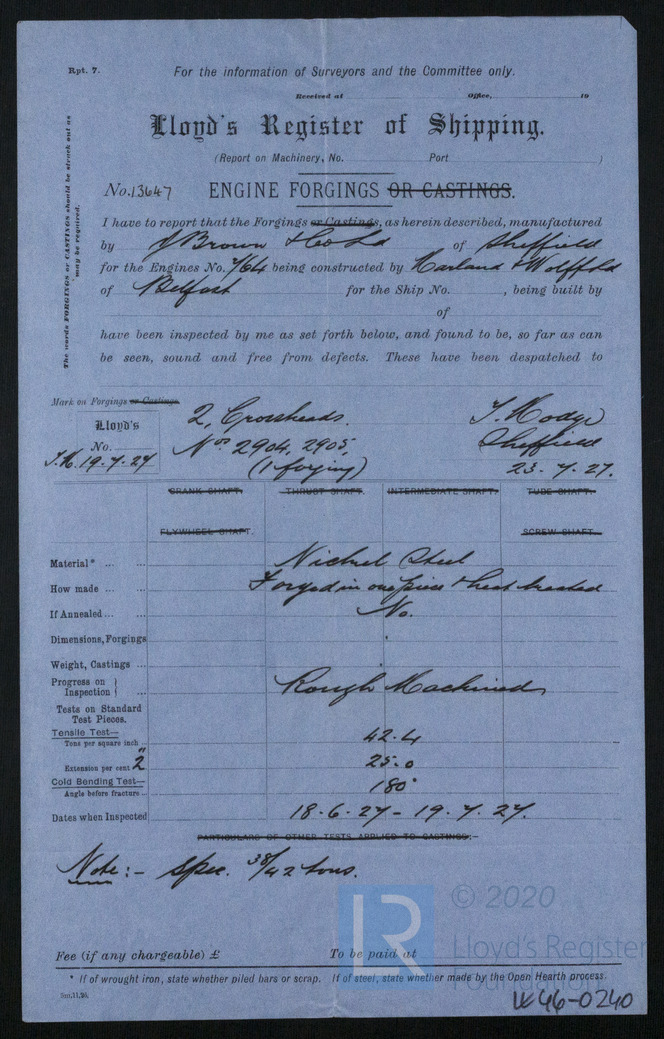 Rpt. 7.
For the information of Surveyors and the Committee only.
Received at Office, 19
Lloyd's Register of Shipping.
(Report on Machinery, No. Port )
No. 13647 ENGINE FORGINGS OR CASTINGS.
The words FORGINGS or CASTINGS should be struck out as
may be required.
I have to report that the Forgings or Castings, as herein described, manufactured
by J Brown & Co Ld of Sheffield
for the Engines No. 7/64 being constructed by Harland & Wolff Ld
of Belfast for the Ship No. , being built by
of
have been inspected by me as set forth below, and found to be, so far as can
be seen, sound and free from defects. These have been despatched to
Mark on Forgings or Castings.
Lloyd's
No.
J.H. 19.7.27
2, Crossheads.
Nos. 2904, 2905,
(1 forging)
J. Hodge
Sheffield
23.7.27.
CRANK SHAFT. THRUST SHAFT. INTERMEDIATE SHAFT. TUBE SHAFT.
FLYWHEEL SHAFT. SCREW SHAFT.
Material* ... ... Nickel Steel
How made ... ... Forged in one piece & heat treated
If Annealed ... ... No.
Dimensions, Forgings
Weight, Castings ...
Progress on } Inspection } ... Rough Machined
Tests on Standard
Test Pieces.
Tensile Test—
Tons per square inch .. 42.4
Extension per cent 2" 25.0
Cold Bending Test—
Angle before fracture .. 180°
Dates when Inspected 18.6.27 - 19.7.27.
PARTICULARS OF OTHER TESTS APPLIED TO CASTINGS:-
Note:- Spec. 38/42 tons.
© 2020
LR
Lloyd's Register
Foundation
Fee (if any chargeable) £ To be paid at
* If of wrought iron, state whether piled bars or scrap. If of steel, state whether made by the Open Hearth process.
5m,11,26.
W46-0240